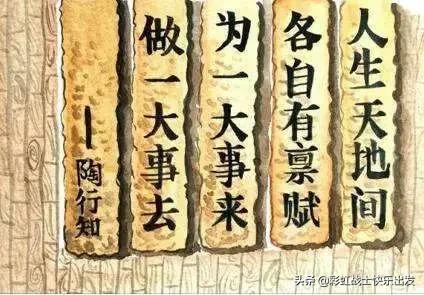 人生天地间
各自有禀赋
为一大事来
做一大事去
—陶行知
头条 @彩虹战士快乐出发